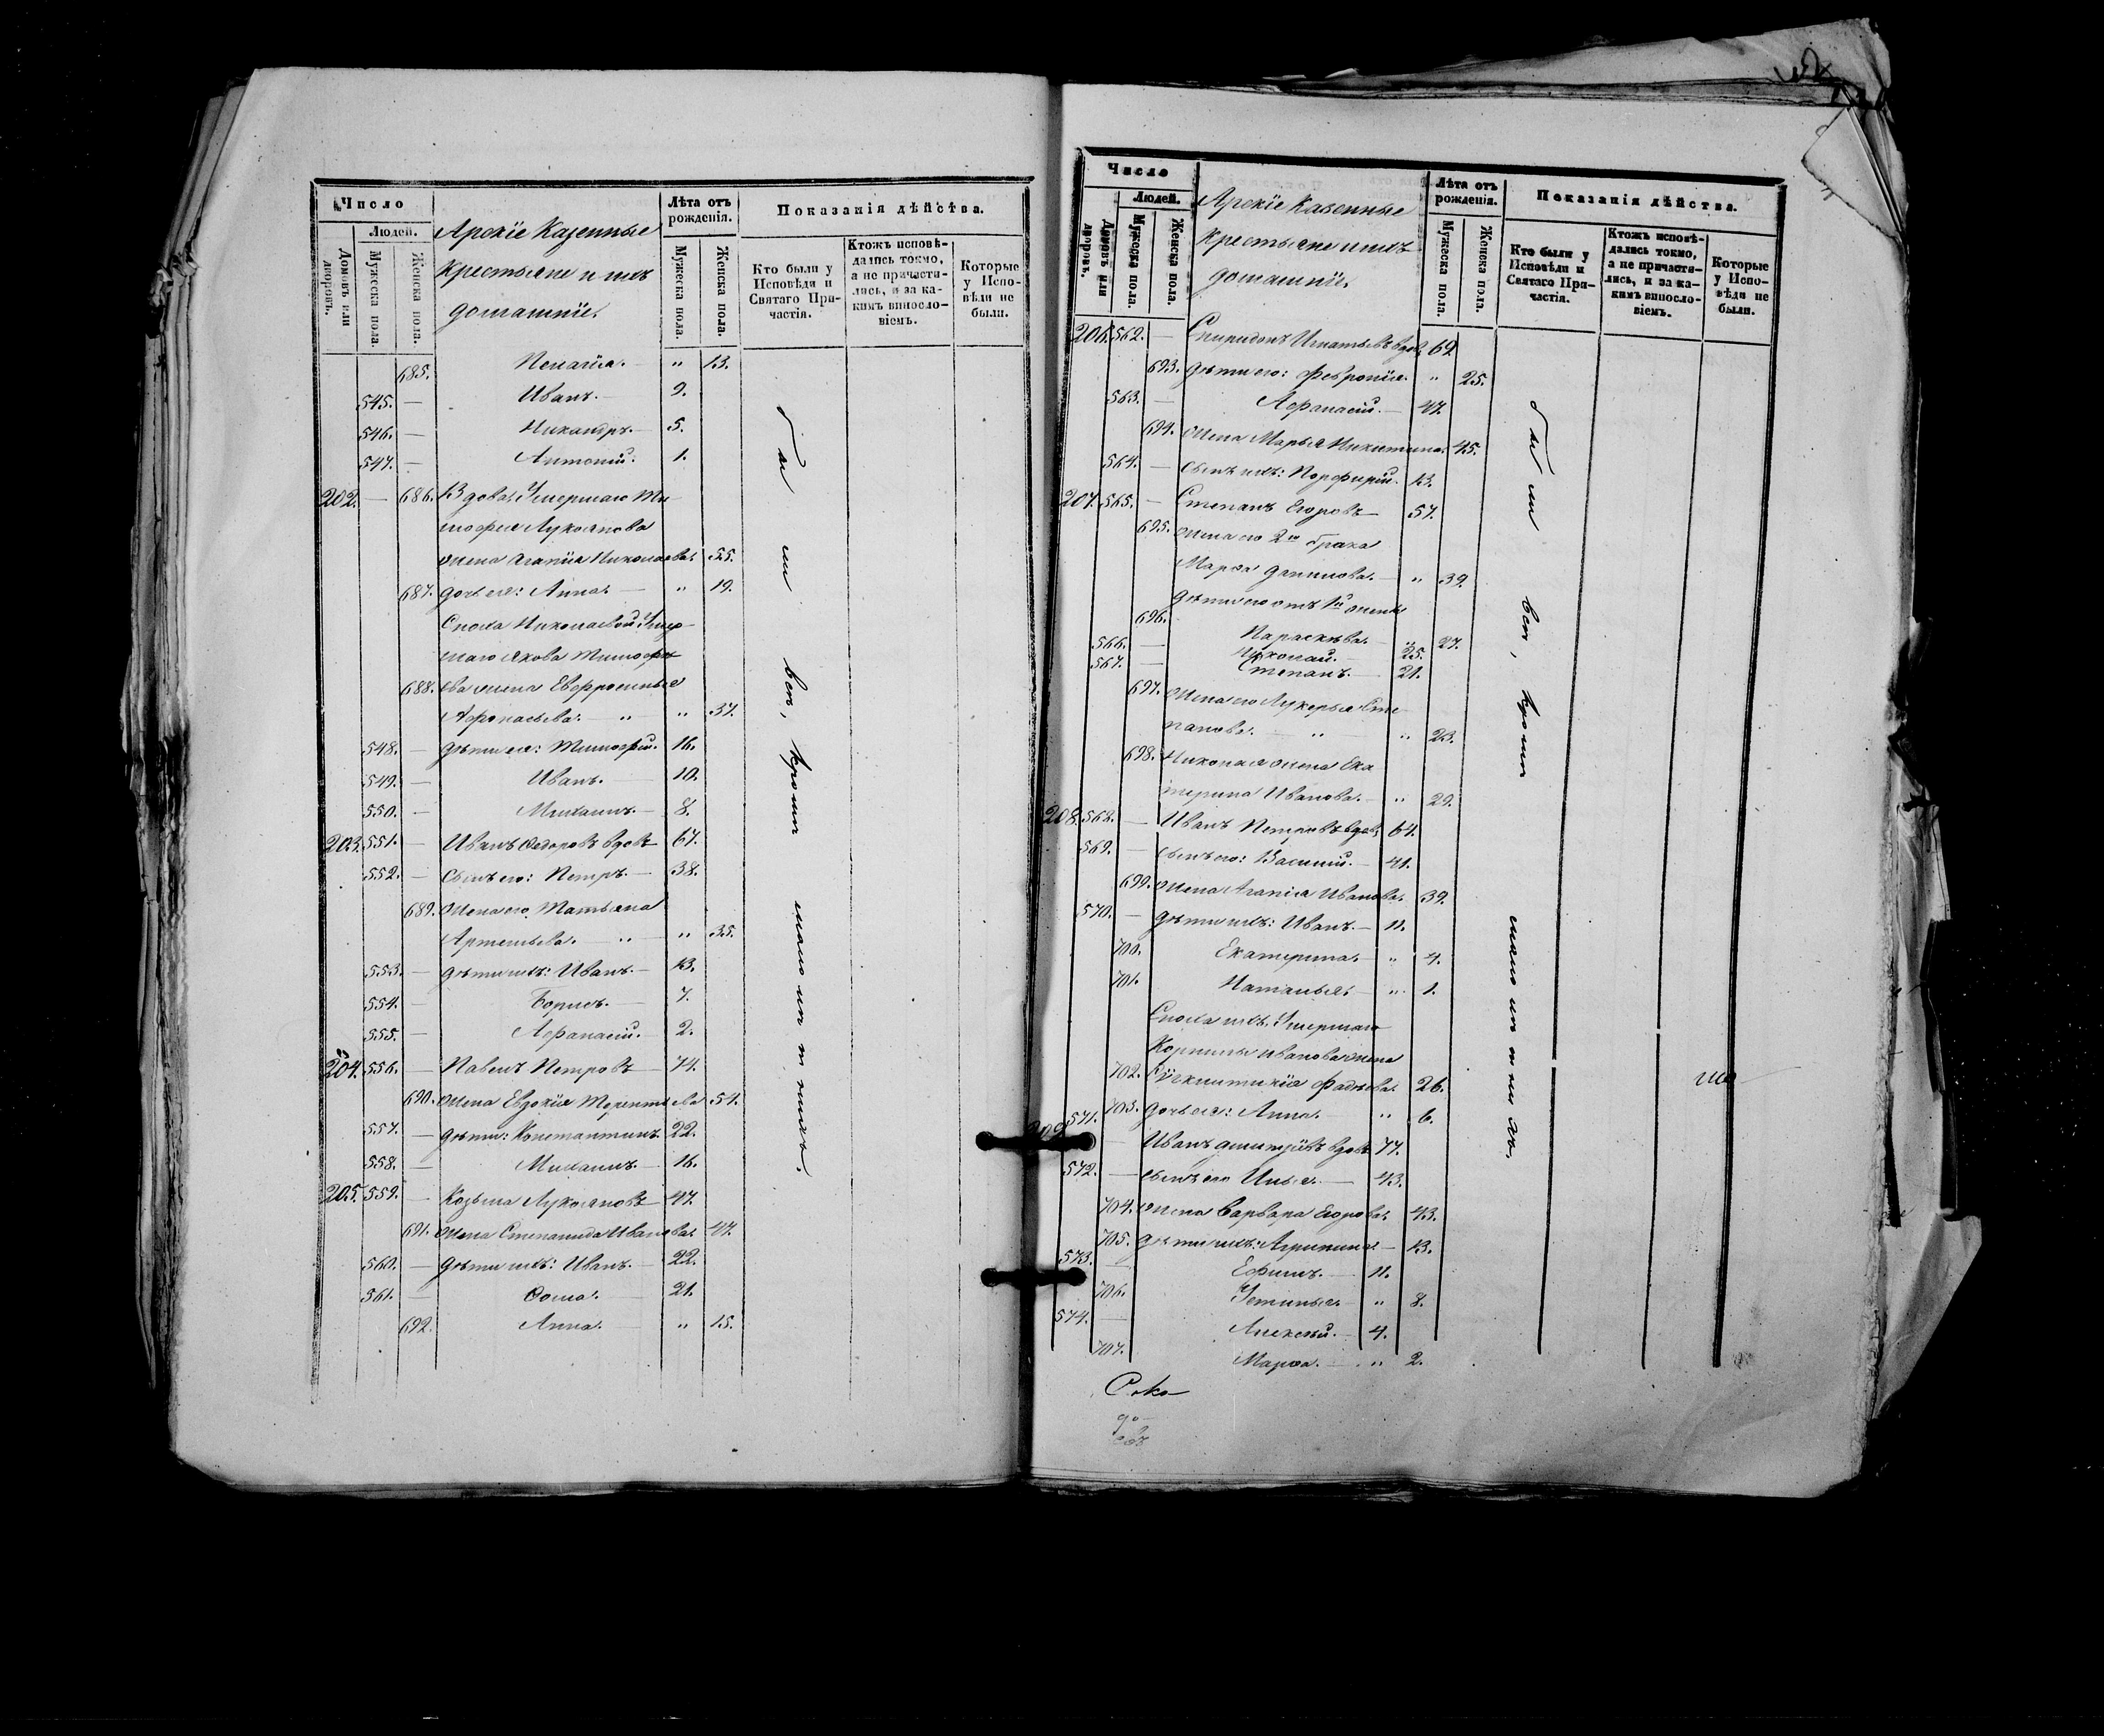 Число
Людей.
Домовъ или дворовъ.
Мужеска пола.
Женска пола.
Арскіе Казенные
крестьяне и ихъ
домашніе.
Лѣта отъ рожденія.
Мужеска пола.
Женска пола.
Показанія дѣйства.
Кто были у Исповѣди и Святаго Причастія.
Ктожъ исповѣдались токмо, а не причастились, и за какимъ винословіемъ.
Которые у Исповѣди не были.
685. Пелагія. — „ 13.
545. — Иванъ. — 9.
546. — Никандръ. — 5.
547. — Антоній. 1.
202. — 686. Вдова: Умершаго Ти-
мофея Лукоянова
жена Агапія Николаева. 55.
687. дочь ея: Анна. — „ 19.
Сноха Николаевой Умер-
шаго Якова Тимофѣ-
688. ева жена Евфросинья
Афонасьева. — „ „ 37.
548. — дѣти ея: Тимофѣй. 16.
549. — Иванъ. — 10.
550. — Михаилъ. — 8.
203. 551. — Иванъ Ѳедоровъ вдовъ 67.
552. — Сынъ его: Петръ. — 38.
689. жена его Татьяна
Артемьева. — „ „ 35.
553. — дѣти ихъ: Иванъ. — 13.
554. — Борисъ. — 7.
555. — Афанасій. — 2.
204. 556. — Павелъ Петровъ — 74.
690. жена Евдокія Терентьева 54.
557. — дѣти: Константинъ. 22.
558. — Михаилъ. — 16.
205. 559. — Козьма Лукояновъ — 47.
691. жена Степанида Иванова. 47.
560. — дѣти ихъ: Иванъ. — 22.
561. — Ѳома. — 21.
692. Анна. — „ 15.
были всѣ, кромѣ
Число
Людей.
Домовъ или дворовъ.
Мужеска пола.
Женска пола.
Арскіе Казенные
крестьяне и ихъ
домашніе.
Лѣта отъ рожденія.
Мужеска пола.
Женска пола.
Показанія дѣйства.
Кто были у Исповѣди и Святаго Причастія.
Ктожъ исповѣдались токмо, а не причастились, и за какимъ винословіемъ.
Которые у Исповѣди не были.
206. 562. — Спиридонъ Игнатьевъ вдовъ 69
693. дѣти его: Февронія. „ 25.
563. — Афанасій. — 47.
694. жена Марья Никитина. 45.
564. — сынъ ихъ: Порфирій. 13.
207. 565. — Степанъ Егоровъ — 57.
695. жена его 2го брака
Марѳа Данилова. — „ 39.
дѣти его отъ 1й жены
696. Параскѣва. — „ 27.
566. — Николай. — 25.
567. — Степанъ. — 21.
697. жена его Лукерья Сте-
панова. — „ „ 23.
698. Николая жена Ека
терина Иванова. — „ 29.
208. 568. — Иванъ Петровъ вдовъ 64.
569. — сынъ его: Василій. — 41.
699. жена Агапія Иванова. 39.
570. — дѣти ихъ: Иванъ. — 11.
700. Екатерина. — „ 4.
701. Наталья. — „ 1.
Сноха ихъ, Умершаго
Корнилы Иванова жена
702. Сѵгклитикія Фадѣева. 26.
703. дочь ея: Анна. — „ 6.
209. 571. — Иванъ Дмитріевъ вдовъ 77.
572. — сынъ его Илья. — 43.
704. жена Варвара Егорова. 43.
705. дѣти ихъ: Агрипина. — 13.
573. — Ефимъ. — 11.
706. Устинья. — „ 8.
574. — Алексѣй. — 4.
707. Марѳа. — „ 2.
были всѣ, кромѣ